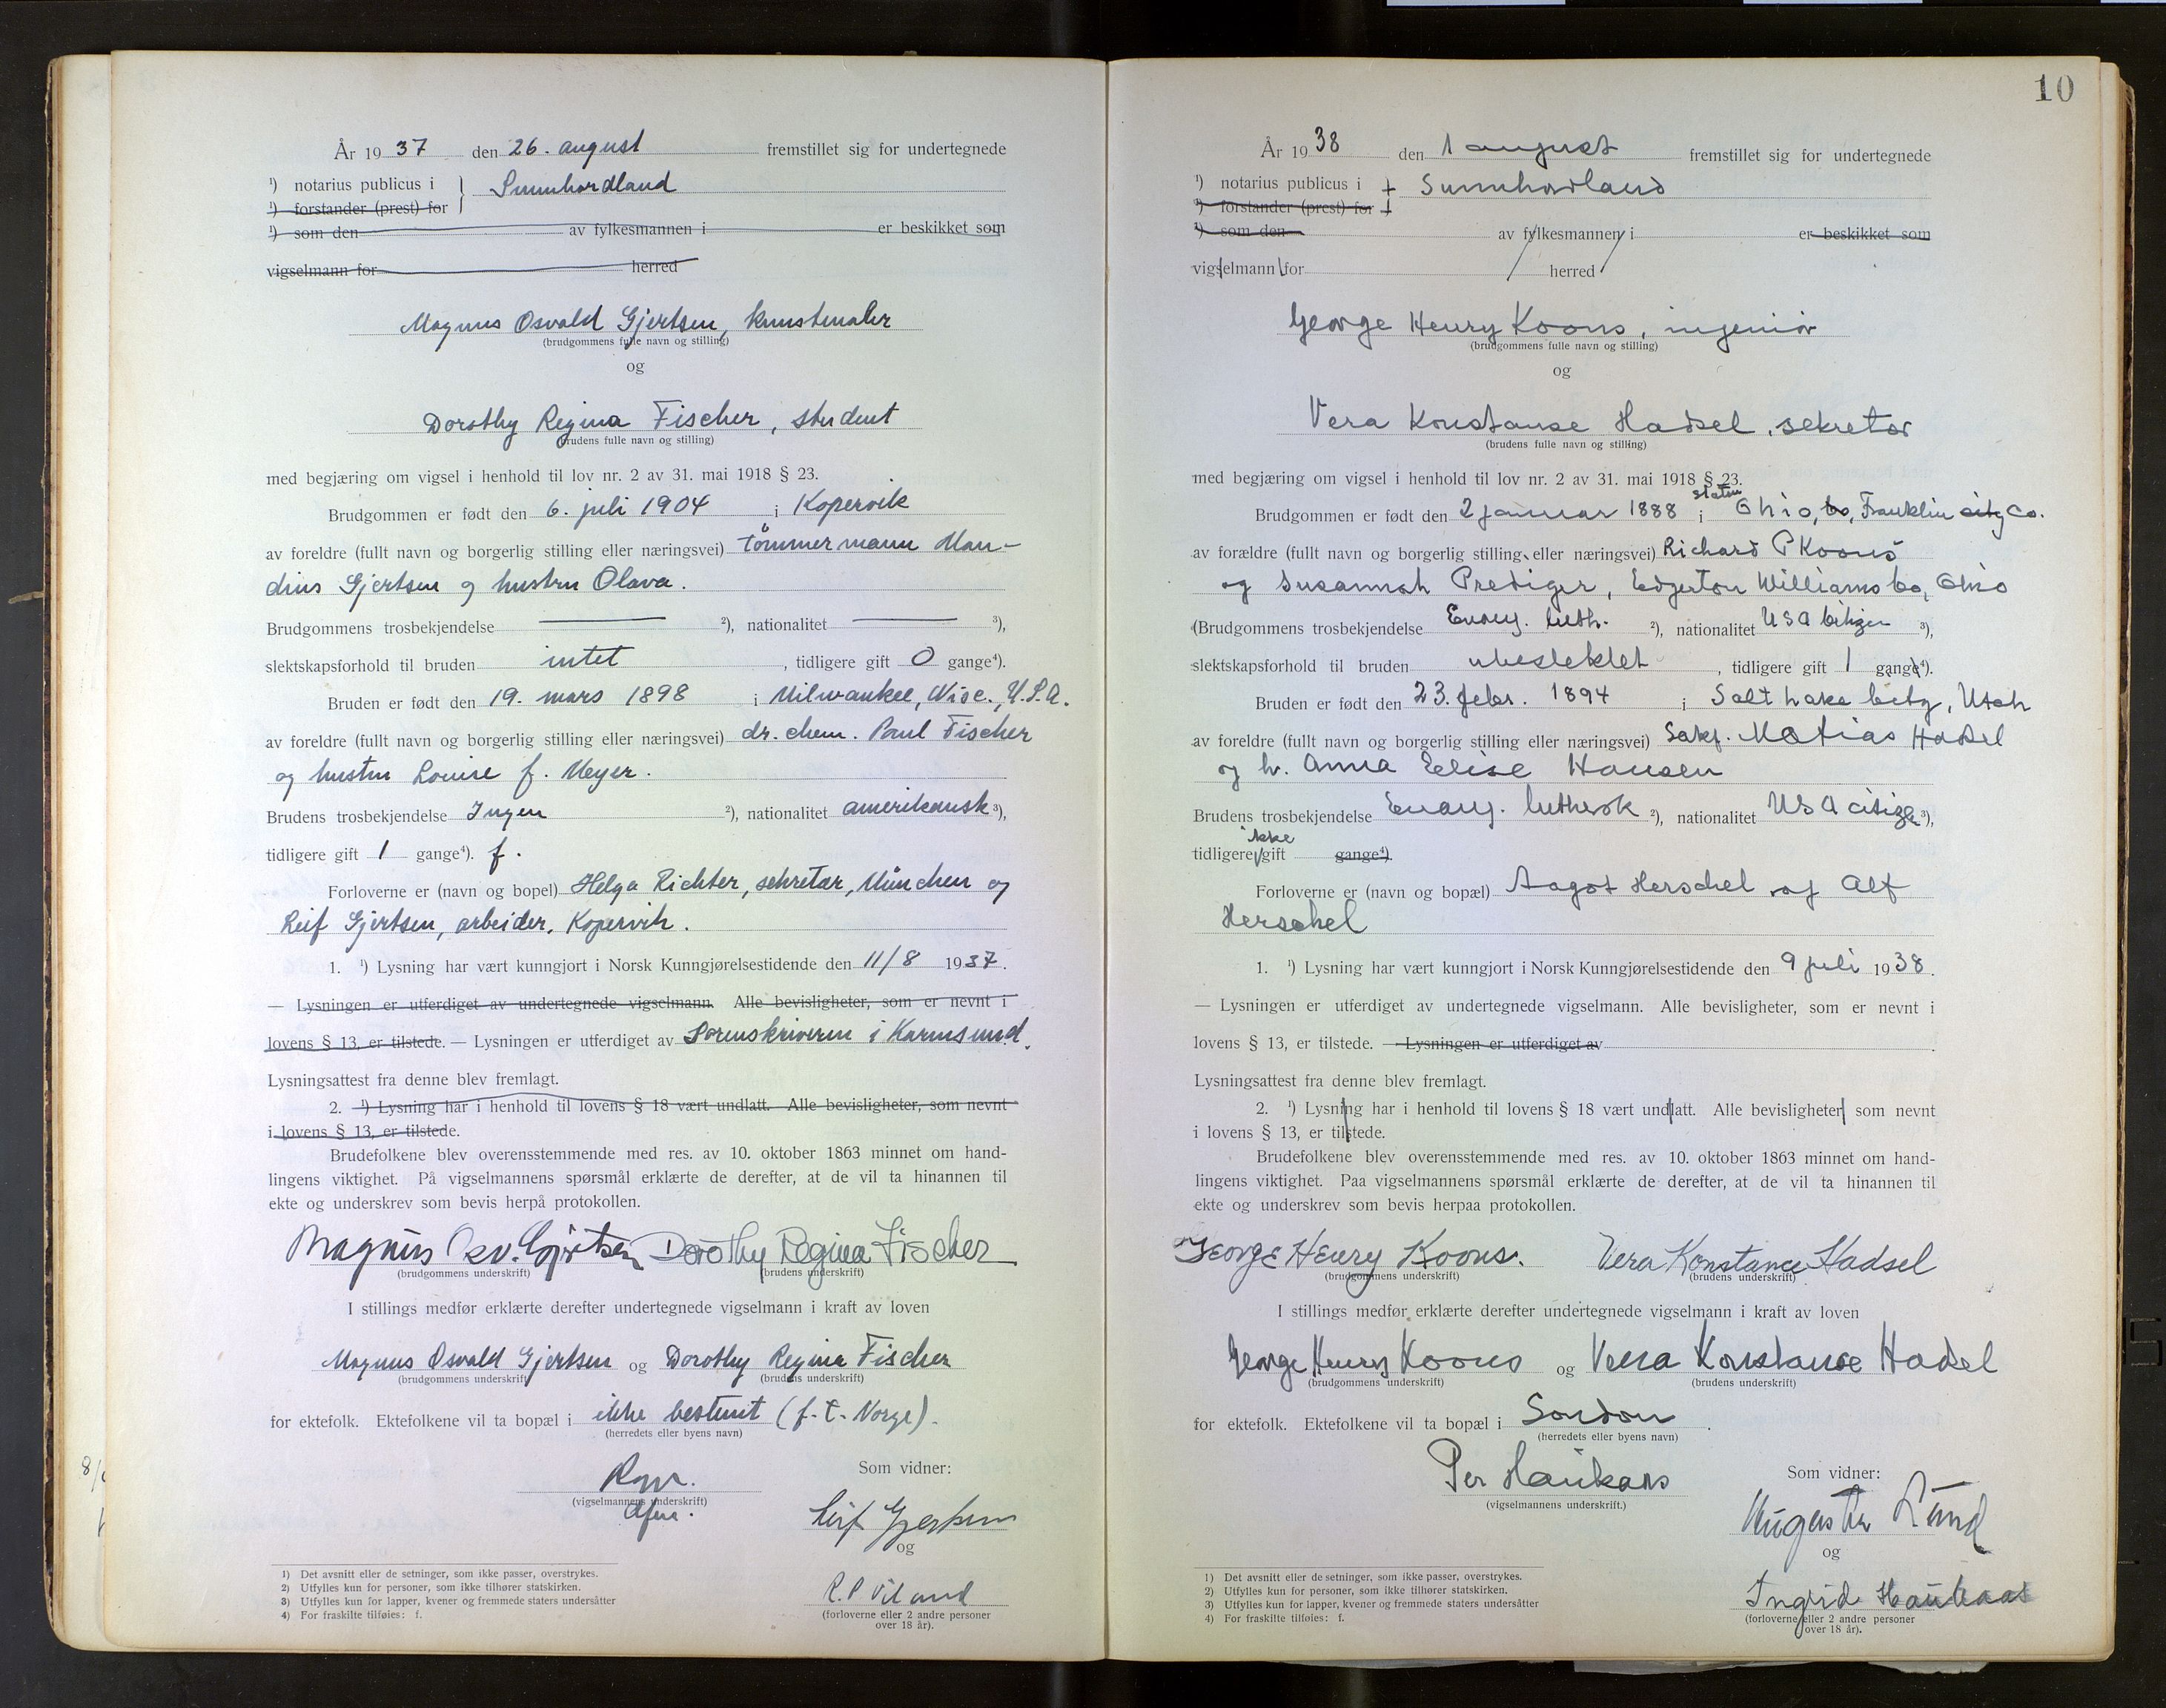 År 1937 den 26. august fremstillet sig for undertegnede
¹) notarius publicus i } Sunnhordland
¹) forstander (prest) for
¹) som den av fylkesmannen i er beskikket som
vigselmann for herred
Magnus Osvald Gjertsen, kunstmaler
(brudgommens fulle navn og stilling)
og
Dorothy Regina Fischer, student
(brudens fulle navn og stilling)
med begjæring om vigsel i henhold til lov nr. 2 av 31. mai 1918 § 23.
Brudgommen er født den 6. juli 1904 i Kopervik
av foreldre (fullt navn og borgerlig stilling eller næringsvei) tömmermann Man-
dius Gjertsen og hustru Olava.
Brudgommens trosbekjendelse — ²), nationalitet — ³),
slektskapsforhold til bruden intet, tidligere gift 0 gange⁴).
Bruden er født den 19. mars 1898 i Milwaukee, Wisc., U.S.A.
av foreldre (fullt navn og borgerlig stilling eller næringsvei) dr. chem. Paul Fischer
og hustru Louise f. Meyer.
Brudens trosbekjendelse Ingen ²), nationalitet amerikansk ³),
tidligere gift 1 gange⁴). f.
Forloverne er (navn og bopel) Helga Richter, sekretær, München og
Leif Gjertsen, arbeider, Kopervik.
1. ¹) Lysning har vært kunngjort i Norsk Kunngjørelsestidende den 11/8 1937.
— Lysningen er utferdiget av undertegnede vigselmann. Alle bevisligheter, som er nevnt i
lovens § 13, er tilstede. — Lysningen er utferdiget av Sorenskriveren i Karmsund.
Lysningsattest fra denne blev fremlagt.
2. ¹) Lysning har i henhold til lovens § 18 vært undlatt. Alle bevisligheter, som nevnt
i lovens § 13, er tilstede.
Brudefolkene blev overensstemmende med res. av 10. oktober 1863 minnet om hand-
lingens viktighet. På vigselmannens spørsmål erklærte de derefter, at de vil ta hinannen til
ekte og underskrev som bevis herpå protokollen.
Magnus Osv. Gjertsen Dorothy Regina Fischer
(brudgommens underskrift) (brudens underskrift)
I stillings medfør erklærte derefter undertegnede vigselmann i kraft av loven
Magnus Osvald Gjertsen og Dorothy Regina Fischer
(brudgommens underskrift) (brudens underskrift)
for ektefolk. Ektefolkene vil ta bopæl i ikke bestemt (f.t. Norge).
(herredets eller byens navn)
Som vidner:
(vigselmannens underskrift)
Leif Gjertsen
og
R. P. Viland
(forloverne eller 2 andre personer
over 18 år).
1) Det avsnitt eller de setninger, som ikke passer, overstrykes.
2) Utfylles kun for personer, som ikke tilhører statskirken.
3) Utfylles kun for lapper, kvener og fremmede staters undersåtter
4) For fraskilte tilføies: f.
10
År 1938 den 1 august fremstillet sig for undertegnede
¹) notarius publicus i Sunnhordland
¹) forstander (prest) for
¹) som den av fylkesmannen i er beskikket som
vigselmann for herred
George Henry Koons, ingeniør
(brudgommens fulle navn og stilling)
og
Vera Konstanse Hadsel, sekretær
(brudens fulle navn og stilling)
med begjæring om vigsel i henhold til lov nr. 2 av 31. mai 1918 § 23.
Brudgommen er født den 2 januar 1888 i staten Ohio, Co, Franklin city Co.
av forældre (fullt navn og borgerlig stilling eller næringsvei) Richard P Koons
og Susannah Prediger, Edgerton Williams Co, Ohio
(Brudgommens trosbekjendelse Evang. luth. ²), nationalitet USA Citizen ³),
slektskapsforhold til bruden ubeslektet, tidligere gift 1 gange⁴).
Bruden er født den 23. febr. 1894 i Salt Lake City, Utah
av foreldre (fullt navn og borgerlig stilling eller næringsvei) Sakf. Matias Hadsel
og h. Anna Elise Hansen
Brudens trosbekjendelse Evang. luthersk ²), nationalitet USA citizen ³),
tidligere ikke gift gange⁴).
Forloverne er (navn og bopæl) Aagot Herschel og Alf
Herschel
1. ¹) Lysning har vært kunngjort i Norsk Kunngjørelsestidende den 9 juli 1938.
— Lysningen er utferdiget av undertegnede vigselmann. Alle bevisligheter, som er nevnt i
lovens § 13, er tilstede. — Lysningen er utferdiget av
Lysningsattest fra denne blev fremlagt.
2. ¹) Lysning har i henhold til lovens § 18 vært undlatt. Alle bevisligheter, som nevnt
i lovens § 13, er tilstede.
Brudefolkene blev overensstemmende med res. av 10. oktober 1863 minnet om hand-
lingens viktighet. Paa vigselmannens spørsmål erklærte de derefter, at de vil ta hinannen til
ekte og underskrev som bevis herpaa protokollen.
George Henry Koons. Vera Konstance Hadsel
(brudgommens underskrift) (brudens underskrift)
I stillings medfør erklærte derefter undertegnede vigselmann i kraft av loven
George Henry Koons og Vera Konstanse Hadsel
(brudgommens underskrift) (brudens underskrift)
for ektefolk. Ektefolkene vil ta bopæl i London.
(herredets eller byens navn)
Per Haukaas
(vigselmannens underskrift.)
Som vidner:
Augusta Lund
og
Ingrid Haukaas
(forloverne eller 2 andre personer
over 18 år).
1) Det avsnitt eller de setninger, som ikke passer, overstrykes.
2) Utfylles kun for personer, som ikke tilhører statskirken.
3) Utfylles kun for lapper, kvener og fremmede staters undersåtter
4) For fraskilte tilføies: f.